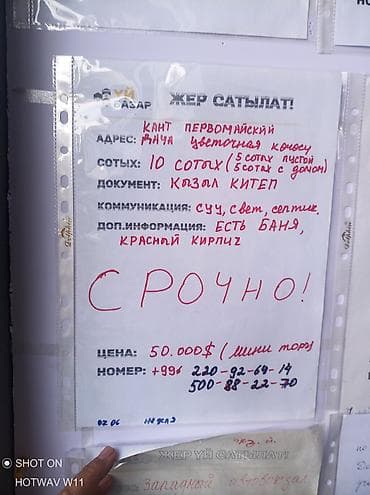 ҮЙ БАЗАР
ЖЕР САТЫЛАТ!
КАНТ ПЕРВОМАЙСКИЙ
АДРЕС: ДАЧА ЦВЕТОЧНАЯ КӨЧӨСҮ
СОТЫХ: 10 СОТЫХ (5 СОТАХ ПУСТОЙ
5 СОТАХ С ДОМОМ)
ДОКУМЕНТ: КЫЗЫЛ КИТЕП
КОММУНИКАЦИЯ: СУУ, СВЕТ, СЕПТИК.
ДОП.ИНФОРМАЦИЯ: ЕСТЬ БАНЯ,
КРАСНЫЙ КИРПИЧ
СРОЧНО!
ЦЕНА: 50.000$ (МИНИ ТОРГ)
НОМЕР: +996 220-92-64-14
500-88-22-70
02 06
ЖЕР ҮЙ САТЫЛАТ!
Западный автовокзал
SHOT ON
HOTWAV W11